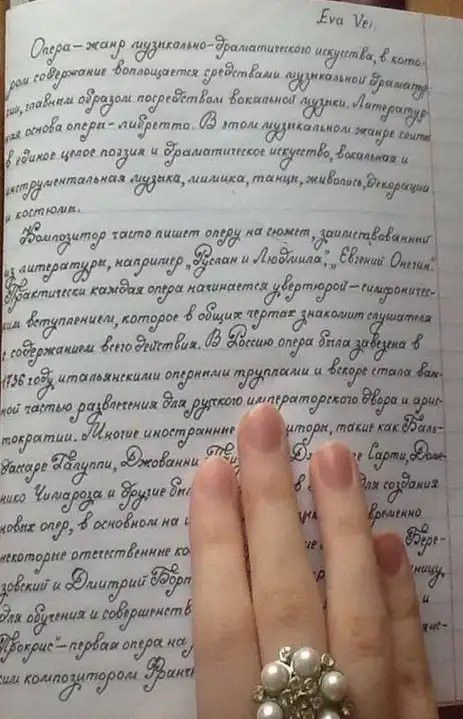 Eva Vei.
Опера – жанр музыкально-драматического искусства, в кото-
ром содержание воплощается средствами музыкальной драматур-
гии, главным образом посредством вокальной музыки. Литератур-
ная основа оперы – либретто. В этом музыкальном жанре слиты
в единое целое поэзия и драматическое искусство, вокальная и
инструментальная музыка, мимика, танцы, живопись, декорации
и костюмы.
Композитор часто пишет оперу на сюжет, заимствованный
из литературы, например „Руслан и Людмила", „Евгений Онегин"
Практически каждая опера начинается увертюрой – симфоничес-
ким вступлением, которое в общих чертах знакомит слушателя
с содержанием всего действия. В Россию опера была завезена в
1736 году, итальянскими оперными труппами и вскоре стала важ-
ной частью развлечения для русского императорского двора и арис-
тократии. Многие иностранные такие как Баль-
дассаре Галуппи, Джованни Сарти, Доме-
нико Чимароза и другие в для создания
новых опер, в основном на
некоторые отечественные Бере-
зовский и Дмитрий
для обучения и и
Прокрис" – первая опера
композитором